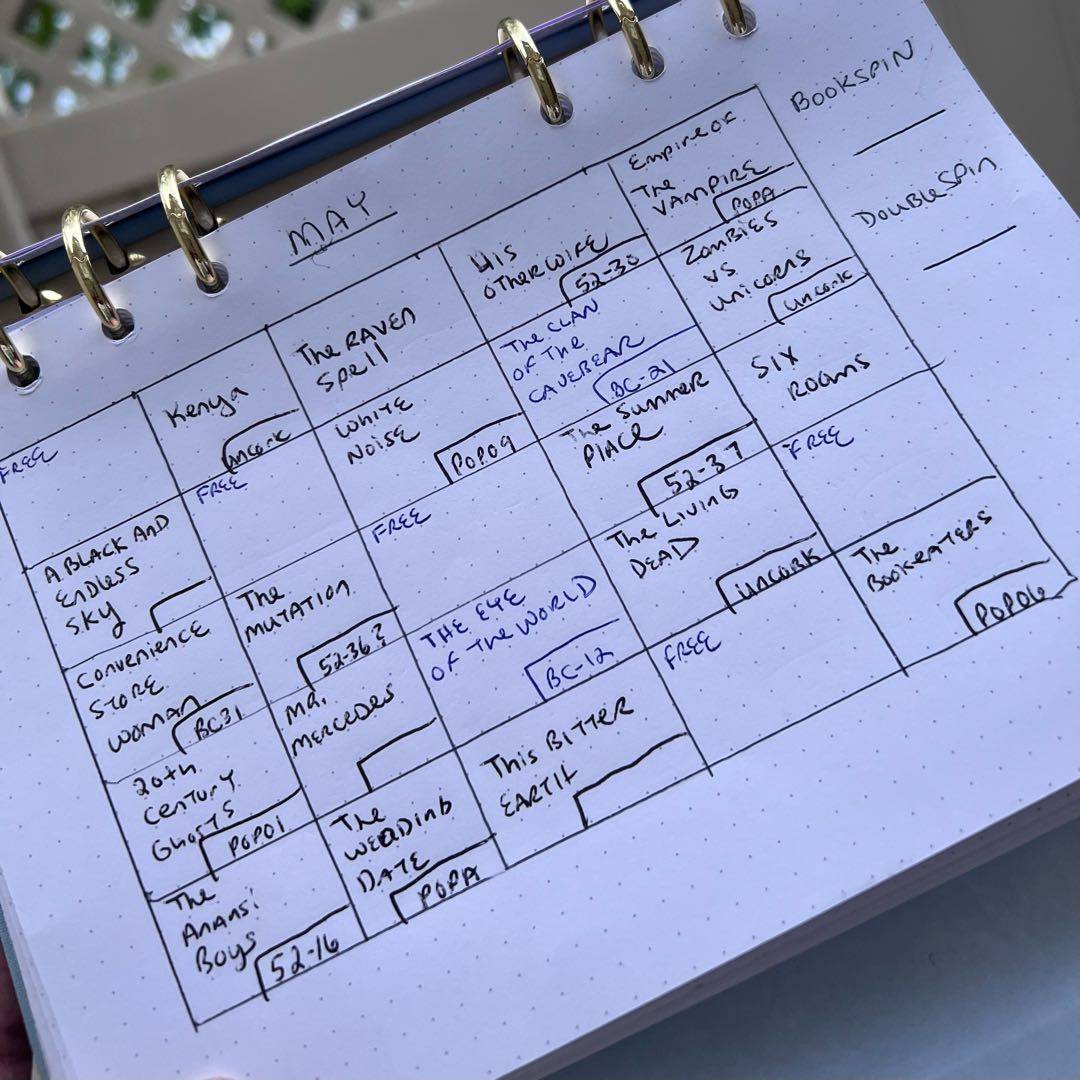 MAY
FREE
Kenya
uncork
The RAVEN
Spell
HIS
OTHER WIFE
52-30
Empire OF
The
VAMPIRE
POPA
A BLACK AND
ENDLESS
SKY
FREE
WHITE
NOISE
POPO9
THE CLAN
OF THE
CAVEBEAR
BC-21
Zombies
vs
unicorns
uncork
CONVENIENCE
STORE
WOMAN
BC31
The
MUTATION
52-36?
FREE
The Summer
PLACE
52-37
SIX
ROOMS
20th
Century
Ghosts
POPO1
MR.
MERCEDES
THE EYE
OF THE WORLD
BC-12
The LIVING
DEAD
uncork
FREE
The
Anansi
Boys
52-16
The
WEDDING
DATE
POPA
This BITTER
EARTH
FREE
The
BOOKEATERS
POPO6
BOOKSPIN
DOUBLESPIN